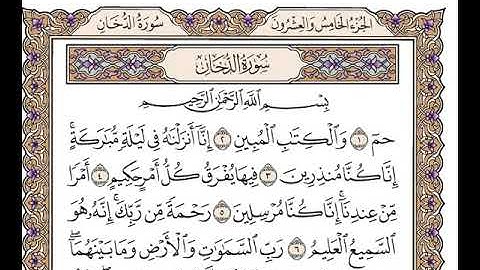 الجزء الخامس والعشرون
سورة الدخان
سُورَةُ الدُّخَانِ
بِسْمِ اللَّهِ الرَّحْمَٰنِ الرَّحِيمِ
حمٓ ۝١ وَٱلْكِتَٰبِ ٱلْمُبِينِ ۝٢ إِنَّآ أَنزَلْنَٰهُ فِى لَيْلَةٍ مُّبَٰرَكَةٍ ۚ
إِنَّا كُنَّا مُنذِرِينَ ۝٣ فِيهَا يُفْرَقُ كُلُّ أَمْرٍ حَكِيمٍ ۝٤ أَمْرًا
مِّنْ عِندِنَآ ۚ إِنَّا كُنَّا مُرْسِلِينَ ۝٥ رَحْمَةً مِّن رَّبِّكَ ۚ إِنَّهُۥ هُوَ
ٱلسَّمِيعُ ٱلْعَلِيمُ ۝٦ رَبِّ ٱلسَّمَٰوَٰتِ وَٱلْأَرْضِ وَمَا بَيْنَهُمَآ ۖ